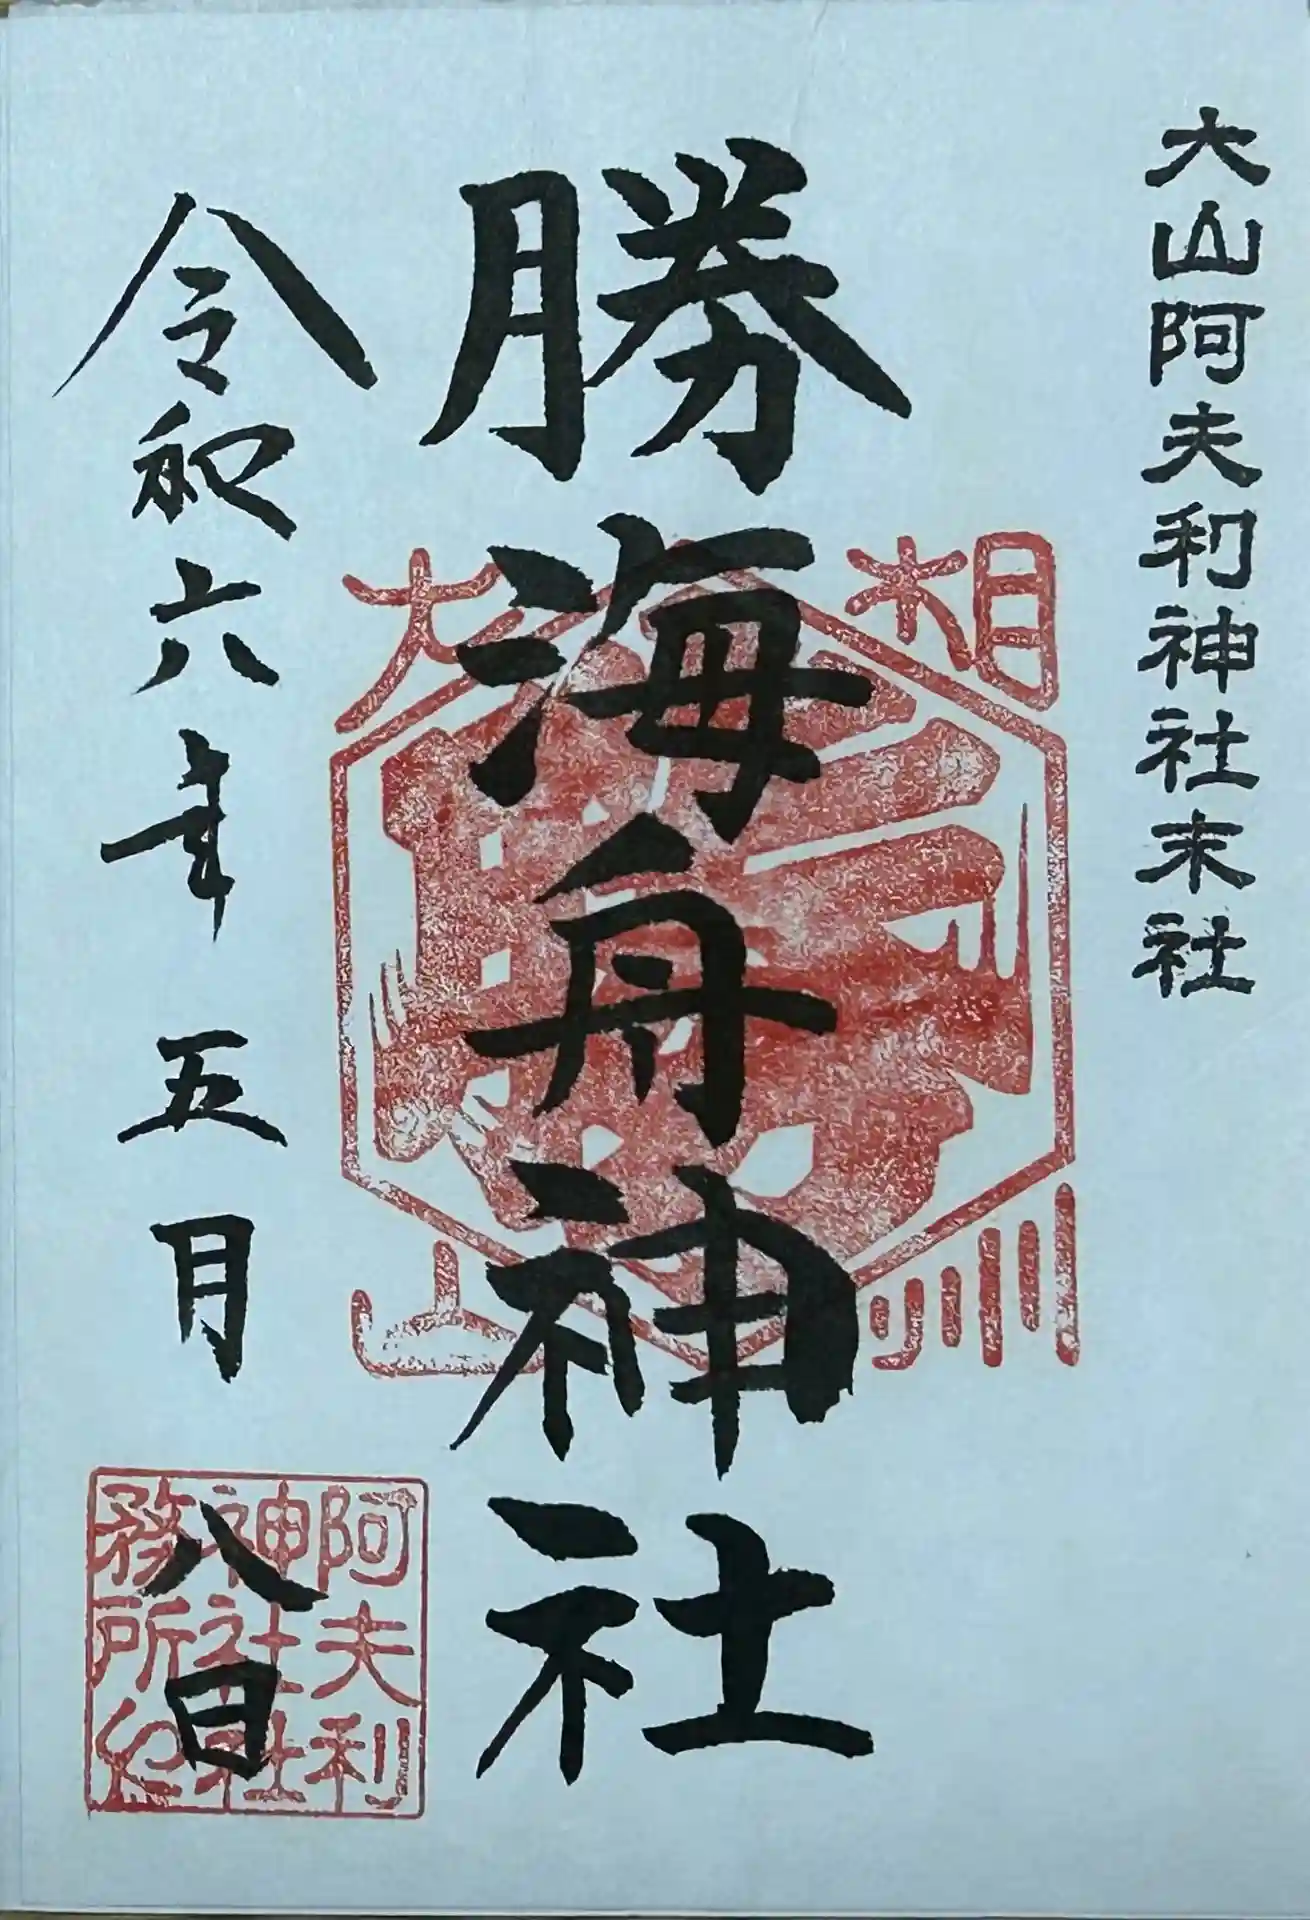 大山阿夫利神社末社
勝海舟神社
令和六年五月八日
相州
大山
阿夫利
神社社
務所印